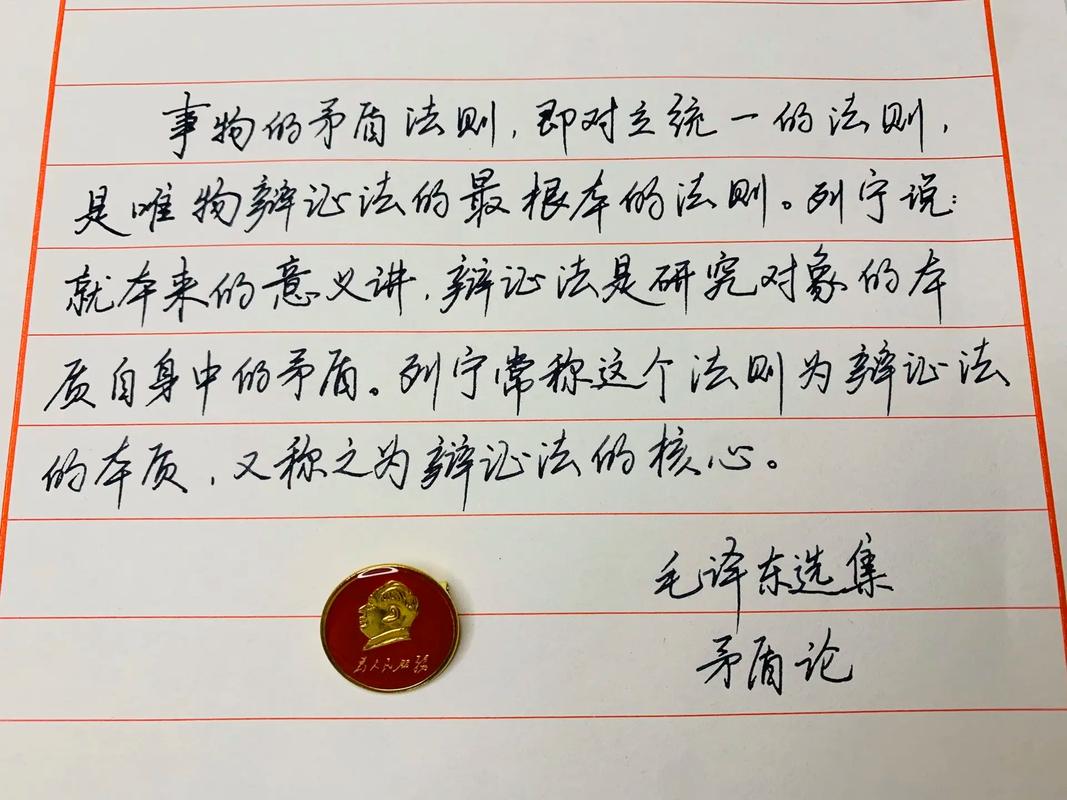 事物的矛盾法则，即对立统一的法则，
是唯物辩证法的最根本的法则。列宁说：
就本来的意义讲，辩证法是研究对象的本
质自身中的矛盾。列宁常称这个法则为辩证法
的本质，又称之为辩证法的核心。
毛泽东选集
矛盾论
为人民服务